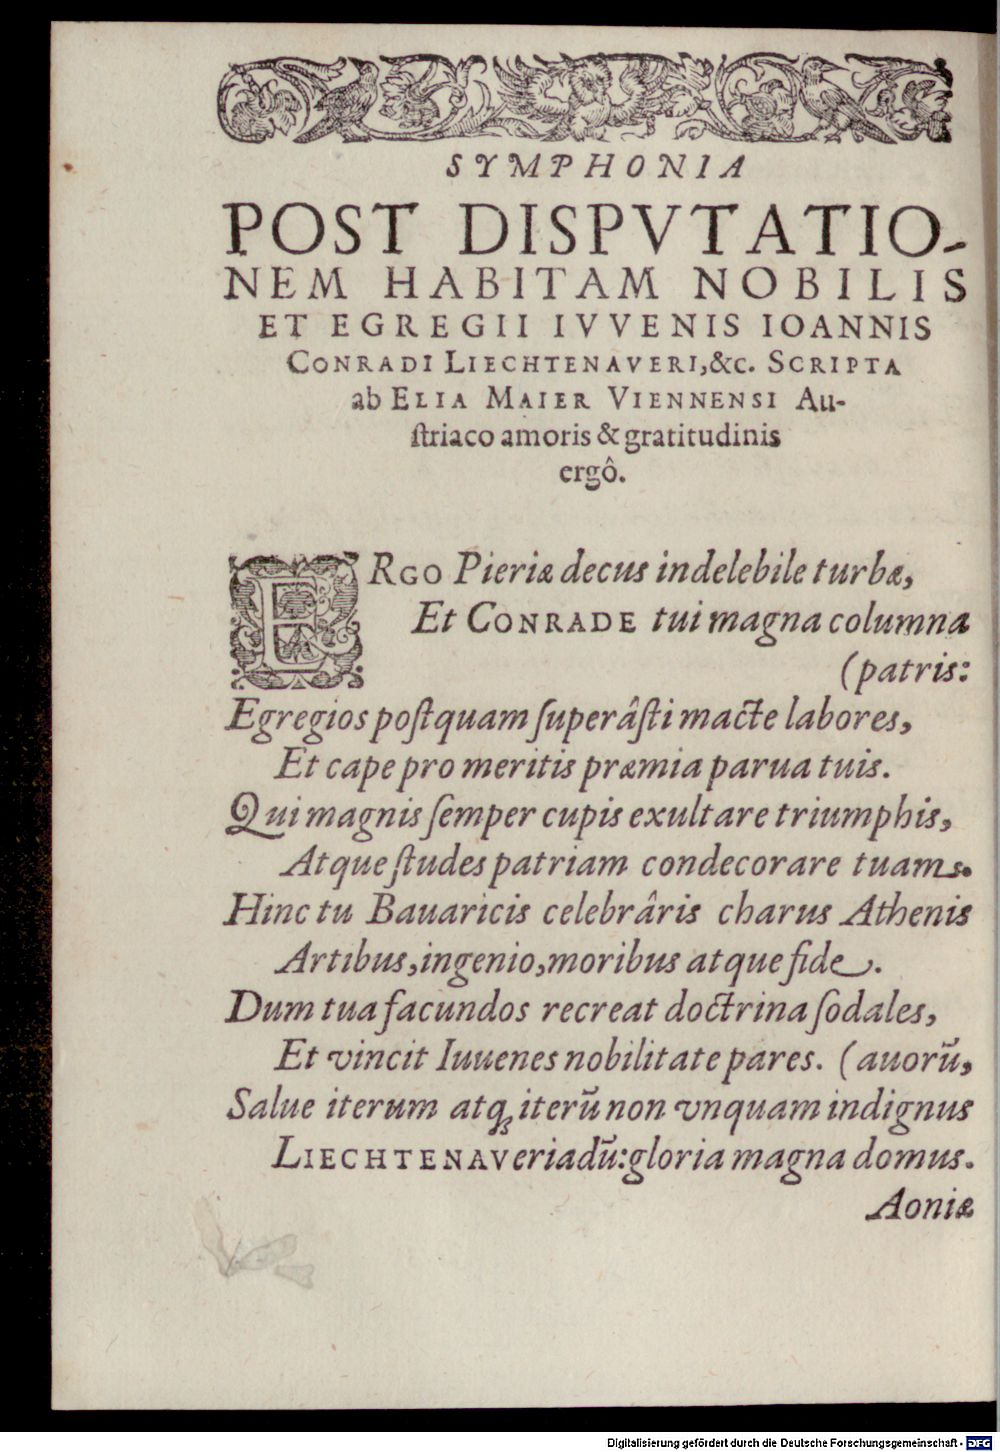 SYMPHONIA
POST DISPVTATIO-
NEM HABITAM NOBILIS
ET EGREGII IVVENIS IOANNIS
CONRADI LIECHTENAVERI,&c. SCRIPTA
ab ELIA MAIER VIENNENSI Au-
ſtriaco amoris & gratitudinis
ergô.
ERGO Pieriæ decus indelebile turbæ,
Et CONRADE tui magna columna
(patris:
Egregios poſtquam ſuperâſti macte labores,
Et cape pro meritis præmia parua tuis.
Qui magnis ſemper cupis exultare triumphis,
Atque ſtudes patriam condecorare tuam.
Hinc tu Bauaricis celebrâris charus Athenis
Artibus, ingenio, moribus atque fide.
Dum tua facundos recreat doctrina ſodales,
Et vincit Iuuenes nobilitate pares. (auorũ,
Salue iterum atq̃ʒ iterũ non vnquam indignus
LIECHTENAVeriadũ: gloria magna domus.
Aoniæ
Digitalisierung gefördert durch die Deutsche Forschungsgemeinschaft - DFG